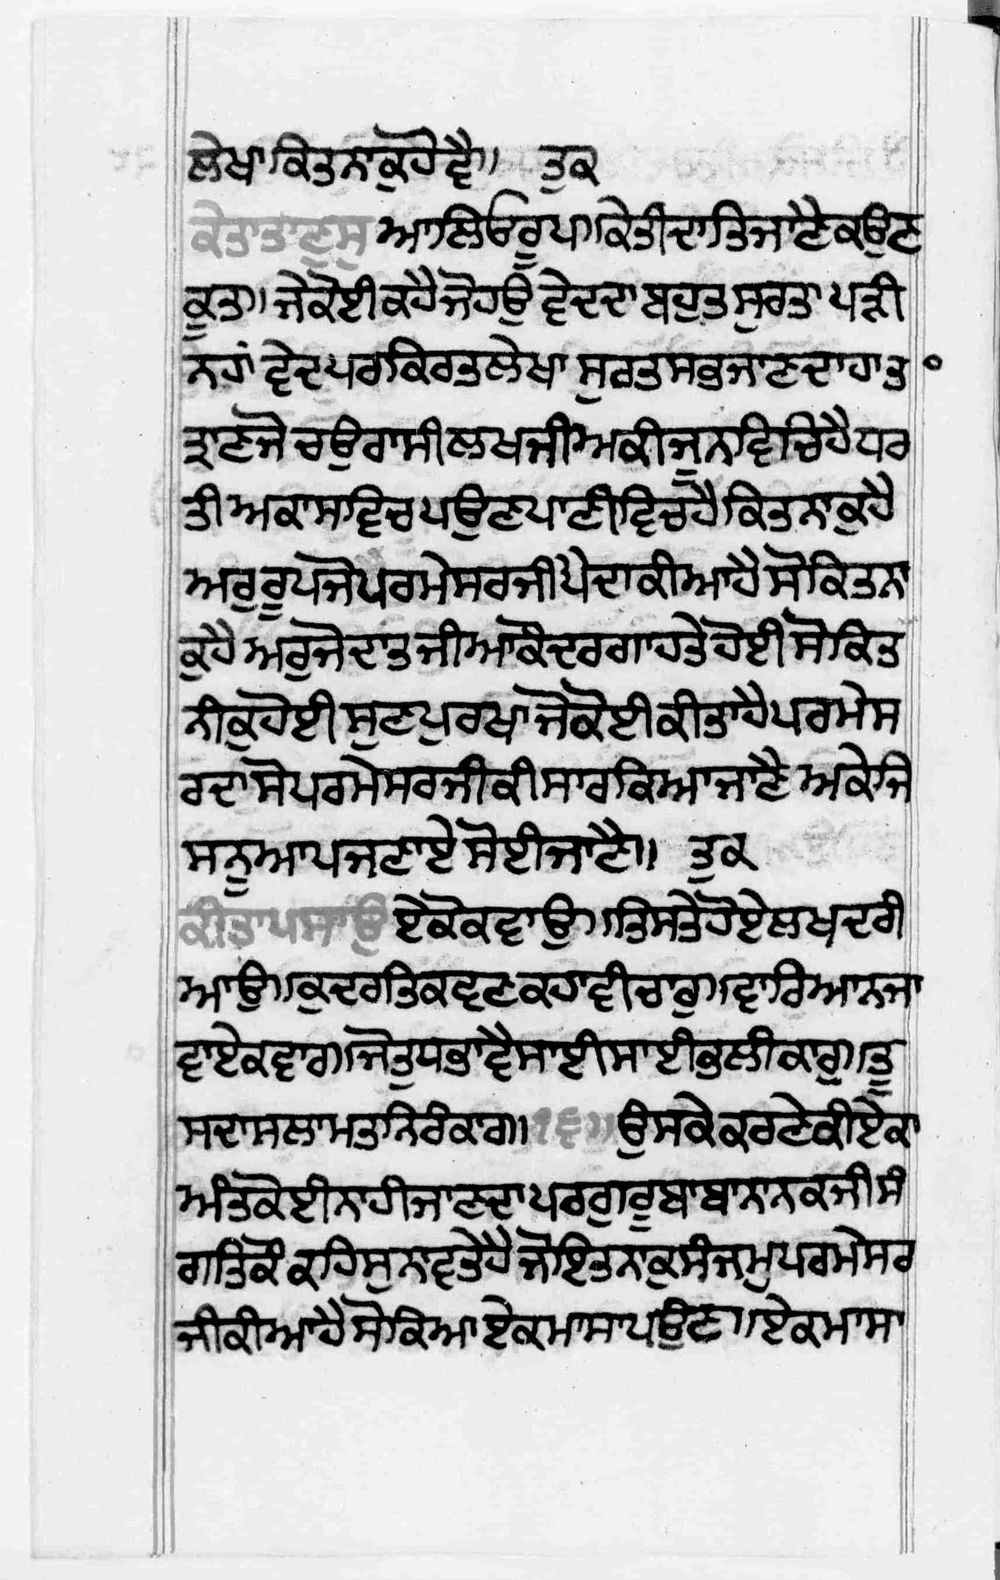 ਲੇਖਾਕਿਤਨਾਕੁਹੋਵੈ॥ ਤੁਕ
ਕੇਤਾਤਾਣੁਸੁਆਲਿਓਰੂਪ॥ਕੇਤੀਦਾਤਿਜਾਣੈਕਉਣ
ਕੂਤ॥ਜੇਕੋਈਕਹੈਜੋਹਉਵੇਦਦਾਬਹੁਤਸੁਰਤਾਪੜੀ
ਨਹਾਂਵੇਦਪਰਕਿਰਤਲੇਖਾਸੁਰਤਸਭਜਾਣਦਾਹਾਤ
ਤ੍ਰਾਣਜੋਚਉਰਾਸੀਲਖਜੀਅਕੀਜੂਨਵਿਚਿਹੈਧਰ
ਤੀਅਕਾਸਵਿਚਪਉਣਪਾਣੀਵਿਚਹੈਕਿਤਨਾਕੁਹੈ
ਅਰੁਰੂਪਜੋਪਰਮੇਸਰਜੀਪੇਦਾਕੀਆਹੈਸੋਕਿਤਨਾ
ਕੁਹੈਅਰੁਜੋਦਾਤਜੀਆਕੋਦਰਗਾਹਤੇਹੋਈਸੋਕਿਤ
ਨੀਕੁਹੋਈਸੁਣਪੁਰਖਾਜੋਕੋਈਕੀਤਾਹੈਪਰਮੇਸ
ਰਦਾਸੋਪਰਮੇਸਰਜੀਕੀਸਾਰਕਿਆਜਾਣੈਅਕੇਜਿ
ਸਨੂਆਪਜਣਾਏਸੋਈਜਾਣੈ॥ ਤੁਕ
ਕੀਤਾਪਸਾਉਏਕੋਕਵਾਉ॥ਤਿਸਤੇਹੋਏਲਖਦਰੀ
ਆਉ॥ਕੁਦਰਤਿਕਵਣਕਹਾਵੀਚਾਰੁ॥ਵਾਰਿਆਨਜਾ
ਵਾਏਕਵਾਰ॥ਜੋਤੁਧਭਾਵੈਸਾਈਸਾਈਭਲੀਕਾਰੁ॥ਤੂ
ਸਦਾਸਲਾਮਤਨਿਰੰਕਾਰ॥੧੬॥ਉਸਕੇਕਰਣੇਕੀਏਕਾ
ਅੰਤਕੋਈਨਾਹੀਜਾਣਦਾਪਰਗੁਰੂਬਾਬਾਨਾਨਕਜੀਸੰ
ਗਤਿਕੌਕਹਿਸੁਨਾਵਤੇਹੈਜੋਇਤਨਾਕੁਸੰਜਮੁਪਰਮੇਸਰ
ਜੀਕੀਆਹੈਸੋਕਿਆਏਕਮਾਸਾਪਉਣ॥ਏਕਮਾਸਾ